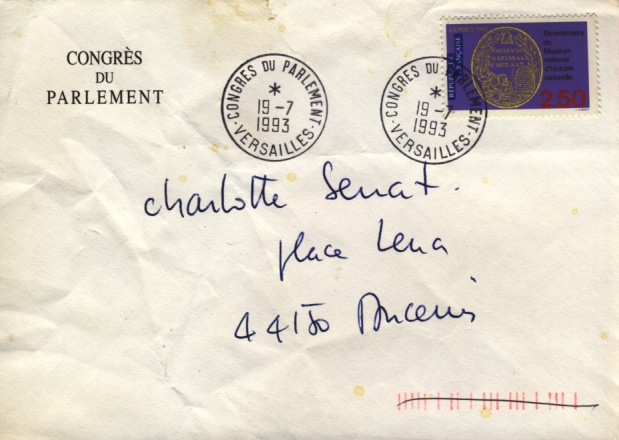 CONGRÈS
DU
PARLEMENT
CONGRÈS DU PARLEMENT
*
19-7
1993
VERSAILLES
CONGRÈS DU PARLEMENT
*
19-7
1993
VERSAILLES
LA POSTE
RÉPUBLIQUE
FRANÇAISE
Bicentenaire
du
Muséum
national
d'histoire
naturelle
2.50
Charlotte Senat.
place Lena
44150 Ancenis